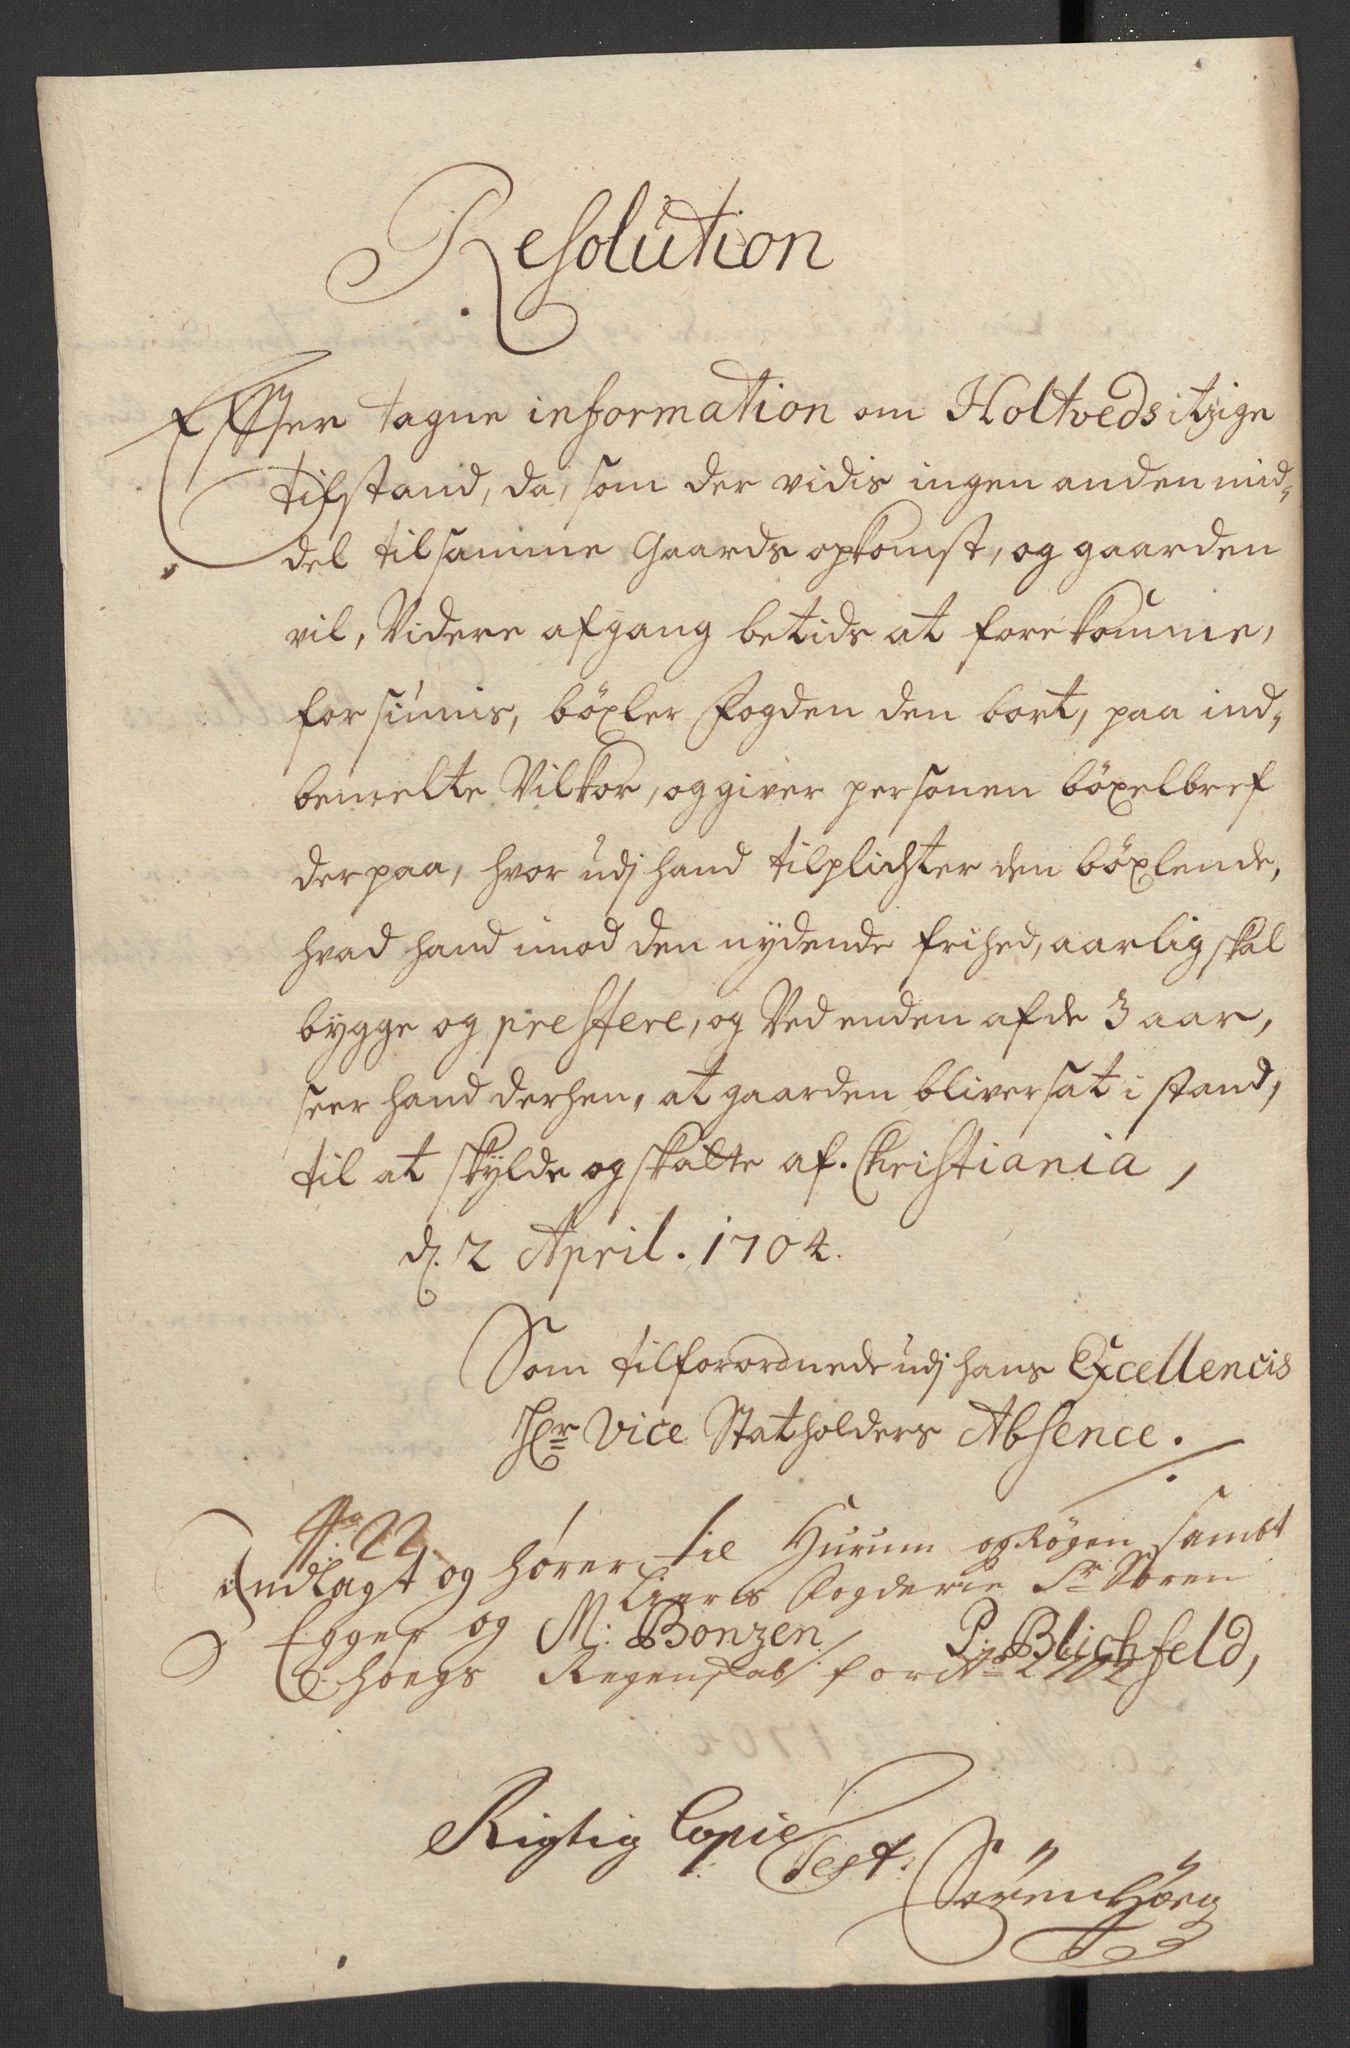 Resolution
Effter tagne information om Holtveds itzige
tilstand, da, som der vidis ingen anden mid-
del til samme Gaards opkomst, og gaarden
vil, Videre afgang betids at forekomme,
forsiunis, böxler Fogden den bort, paa ind-
bemelte Vilkor, og giver personen böxelbref
derpaa, hvor udj hand tilplichter den böxlende,
hvad hand imod den nydende frihed, aarlig skal
bygge og prestere, og Ved enden af de 3 aar,
seer hand derhen, at gaarden bliver sat i stand,
til at skylde og skatte af. Christiania,
d. 2 April. 1704.
Som tilforordnede udj hans Excellencis
Hr Vice Statholders Absence.
No 22.
Indlagt og hører til Hurum og Røgen sambt
Liers Fogderie Sr Søren
Egger og M: Bonzen P: Blichfeld,
Høegs Regenskab for Ao
Rigtig Copie
Test.
Søren Höeg